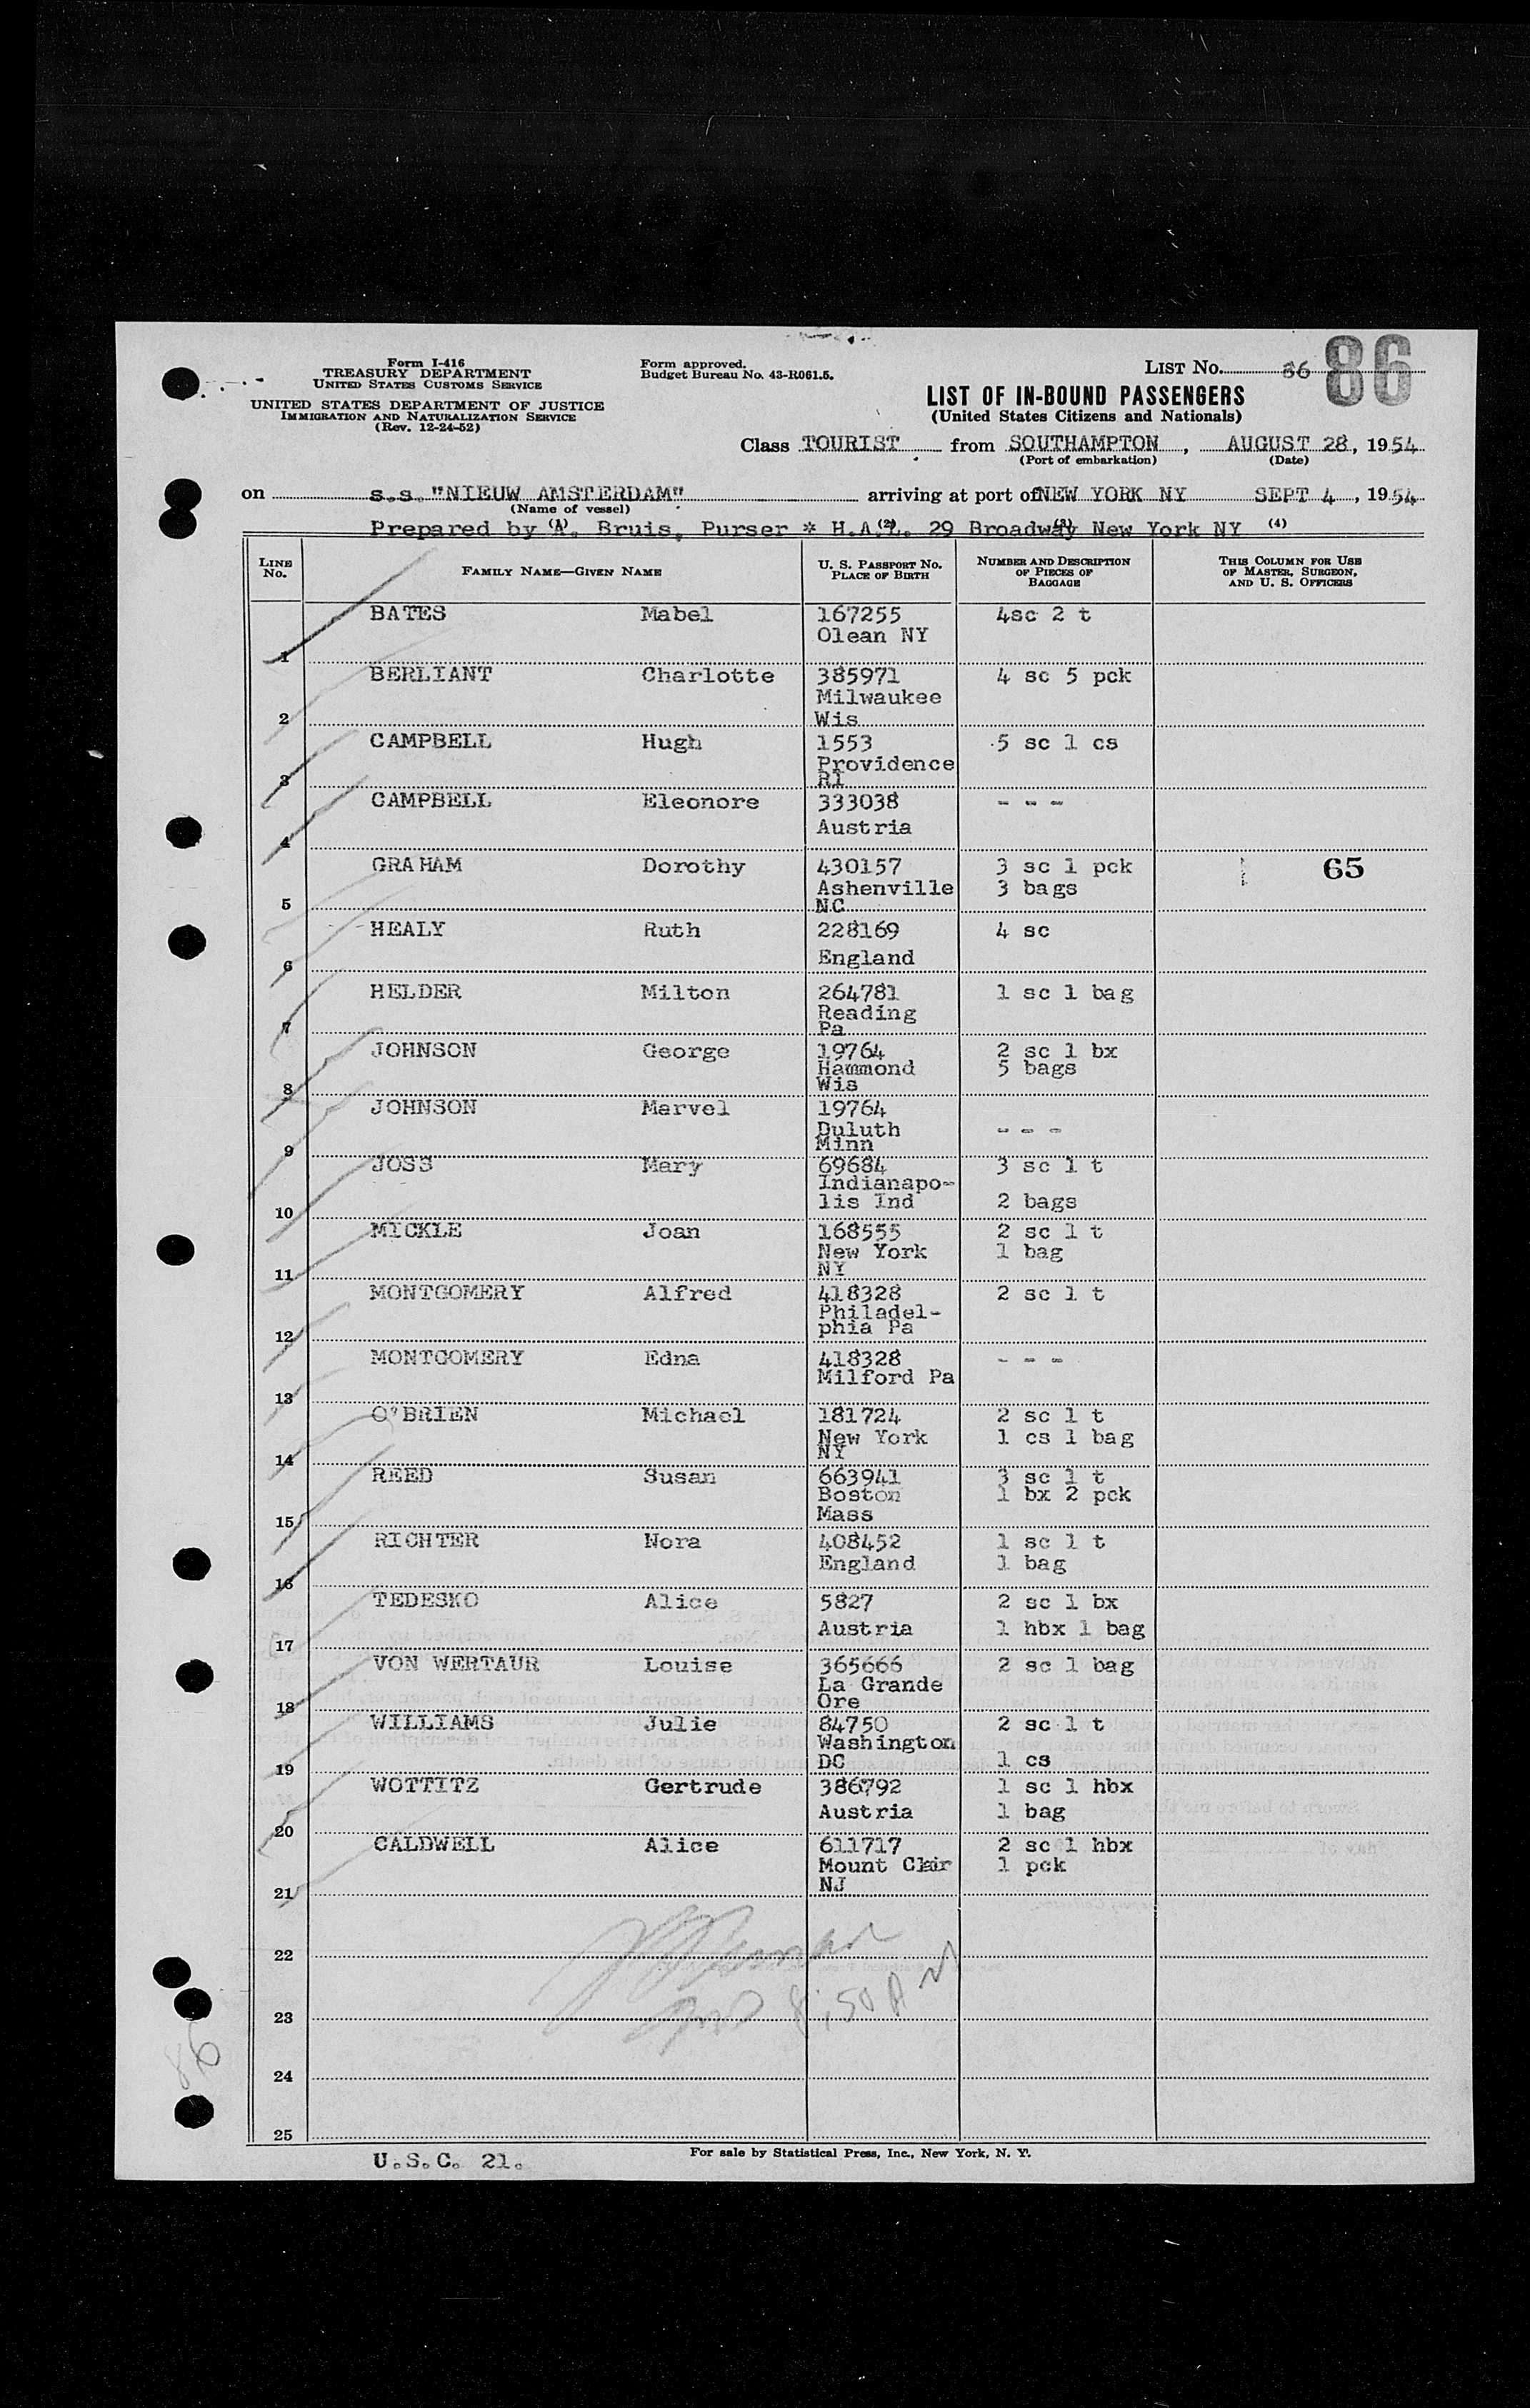 Form I-416
TREASURY DEPARTMENT
UNITED STATES CUSTOMS SERVICE
UNITED STATES DEPARTMENT OF JUSTICE
IMMIGRATION AND NATURALIZATION SERVICE
(Rev. 12-24-52)
Form approved.
Budget Bureau No. 43-R061.5.
LIST No. 86
86
LIST OF IN-BOUND PASSENGERS
(United States Citizens and Nationals)
Class TOURIST from SOUTHAMPTON, AUGUST 28, 1954
(Port of embarkation) (Date)
on s.s. "NIEUW AMSTERDAM" arriving at port of NEW YORK NY SEPT 4, 1954
(Name of vessel)
Prepared by A. Bruis, Purser * H.A.L. 29 Broadway New York NY
(1) (2) (3) (4)
LINE No. FAMILY NAME—GIVEN NAME U. S. PASSPORT No. PLACE OF BIRTH NUMBER AND DESCRIPTION OF PIECES OF BAGGAGE THIS COLUMN FOR USE OF MASTER, SURGEON, AND U. S. OFFICERS
BATES Mabel 167255 4sc 2 t
Olean NY
1
BERLIANT Charlotte 385971 4 sc 5 pck
Milwaukee
2 Wis
CAMPBELL Hugh 1553 5 sc 1 cs
Providence
3 RI
CAMPBELL Eleonore 333038 - - -
Austria
4
GRAHAM Dorothy 430157 3 sc 1 pck 65
Ashenville 3 bags
5 NC
HEALY Ruth 228169 4 sc
England
6
HELDER Milton 264781 1 sc 1 bag
Reading
7 Pa
JOHNSON George 19764 2 sc 1 bx
Hammond 5 bags
8 Wis
JOHNSON Marvel 19764
Duluth - - -
9 Minn
JOSS Mary 69684 3 sc 1 t
Indianapo-
10 lis Ind 2 bags
MICKLE Joan 168555 2 sc 1 t
New York 1 bag
11 NY
MONTGOMERY Alfred 418328 2 sc 1 t
Philadel-
12 phia Pa
MONTGOMERY Edna 418328 - - -
Milford Pa
13
O'BRIEN Michael 181724 2 sc 1 t
New York 1 cs 1 bag
14 NY
REED Susan 663941 3 sc 1 t
Boston 1 bx 2 pck
15 Mass
RICHTER Nora 408452 1 sc 1 t
England 1 bag
16
TEDESKO Alice 5827 2 sc 1 bx
Austria 1 hbx 1 bag
17
VON WERTAUR Louise 365666 2 sc 1 bag
La Grande
18 Ore
WILLIAMS Julie 84750 2 sc 1 t
Washington
19 DC 1 cs
WOTTITZ Gertrude 386792 1 sc 1 hbx
Austria 1 bag
20
CALDWELL Alice 611717 2 sc 1 hbx
Mount Clair 1 pck
21 NJ
22
8:50 AM
23
86
24
25
U.S.C. 21.
For sale by Statistical Press, Inc., New York, N. Y.